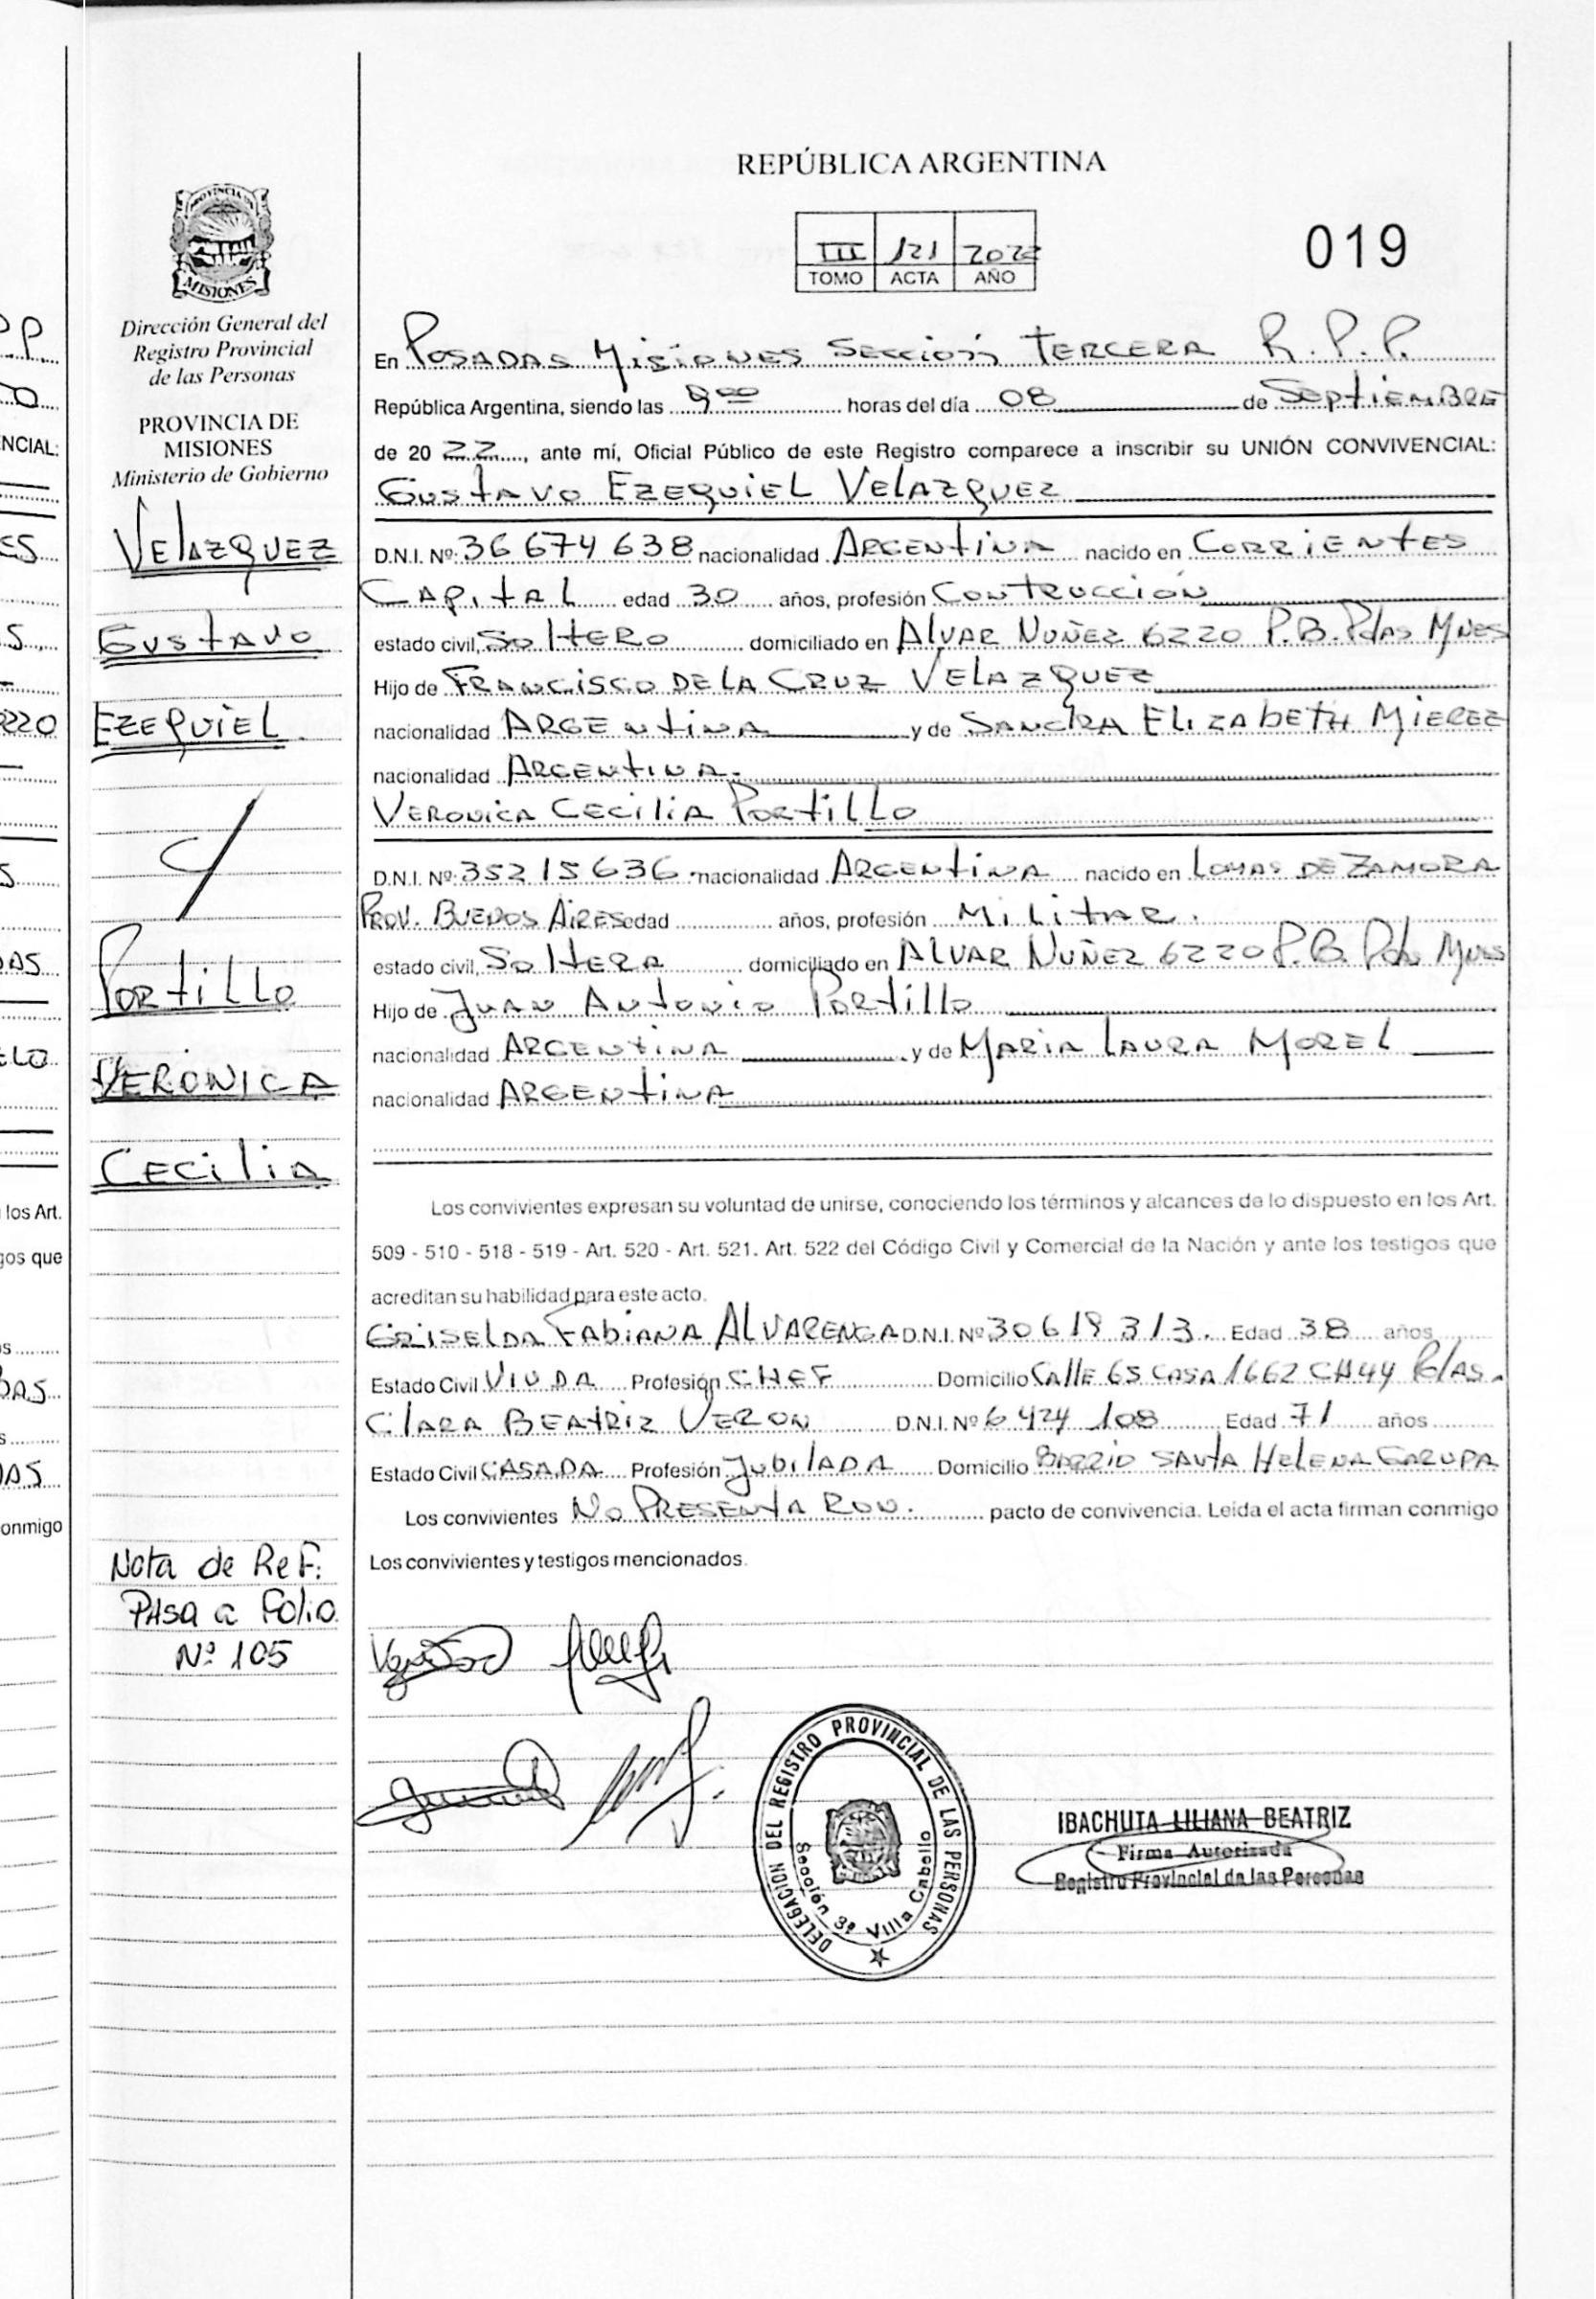 REPÚBLICA ARGENTINA
III 121 2022
TOMO ACTA AÑO
019
PROVINCIA DE
MISIONES
Dirección General del
Registro Provincial
de las Personas
PROVINCIA DE
MISIONES
Ministerio de Gobierno
VELAZQUEZ
GUSTAVO
EZEQUIEL
Y
PORTILLO
VERONICA
CECILIA
Nota de Ref:
PASA a Folio
Nº 105
En POSADAS MISIONES SECCIÓN TERCERA R.P.P.
República Argentina, siendo las 9 00 horas del día 08 de SEPTIEMBRE
de 20 22, ante mí, Oficial Público de este Registro comparece a inscribir su UNIÓN CONVIVENCIAL:
GUSTAVO EZEQUIEL VELAZQUEZ
D.N.I. Nº: 36 674 638 nacionalidad ARGENTINA nacido en CORRIENTES
CAPITAL edad 30 años, profesión CONTRUCCIÓN
estado civil, SOLTERO domiciliado en ALVAR NUÑEZ 6220 P.B. Pdas Mnes
Hijo de FRANCISCO DE LA CRUZ VELAZQUEZ
nacionalidad ARGENTINA y de SANDRA ELIZABETH MIEREZ
nacionalidad ARGENTINA.
VERONICA CECILIA PORTILLO
D.N.I. Nº: 35215636 nacionalidad ARGENTINA nacido en LOMAS DE ZAMORA
PROV. BUENOS AIRES edad años, profesión MILITAR.
estado civil, SOLTERA domiciliado en ALVAR NUÑEZ 6220 P.B. Pdas Mnes
Hijo de JUAN ANTONIO PORTILLO
nacionalidad ARGENTINA y de MARIA LAURA MOREL
nacionalidad ARGENTINA
Los convivientes expresan su voluntad de unirse, conociendo los términos y alcances de lo dispuesto en los Art.
509 - 510 - 518 - 519 - Art. 520 - Art. 521. Art. 522 del Código Civil y Comercial de la Nación y ante los testigos que
acreditan su habilidad para este acto.
GRISELDA FABIANA ALVARENGA D.N.I. Nº 30 619 313. Edad 38 años
Estado Civil VIUDA Profesión CHEF Domicilio CALLE 65 CASA 1662 CH44 Pdas.
CLARA BEATRIZ VERON D.N.I. Nº 6 424 108 Edad 71 años
Estado Civil CASADA Profesión JUBILADA Domicilio BARRIO SANTA HELENA GARUPA
Los convivientes NO PRESENTARON. pacto de convivencia. Leída el acta firman conmigo
Los convivientes y testigos mencionados.
DELEGACION DEL REGISTRO PROVINCIAL DE LAS PERSONAS
Sección 3ª Villa Cabello
IBACHUTA LILIANA BEATRIZ
Firma Autorizada
Registro Provincial de las Personas